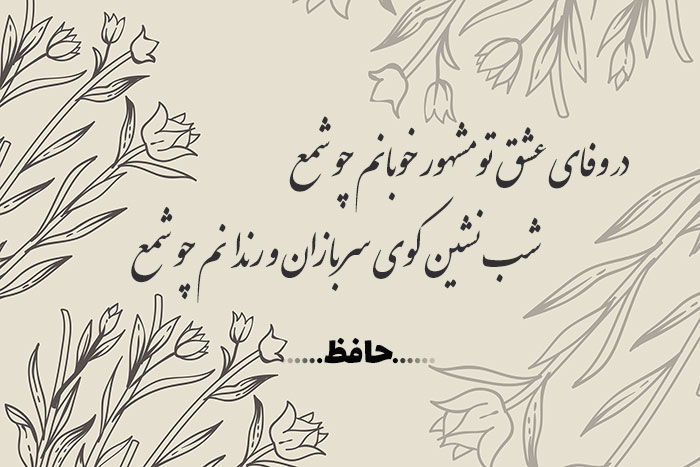 در وفای عشق تو مشهور خوبانم چو شمع
شب نشین کوی سربازان و رندانم چو شمع
......حافظ......